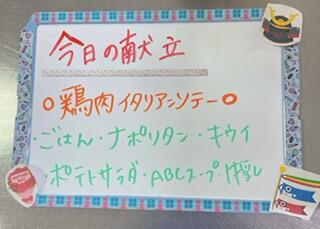 今日の献立
○鶏肉イタリアンソテー○
・ごはん・ナポリタン・キウイ
・ポテトサラダ・ABCスープ・牛乳